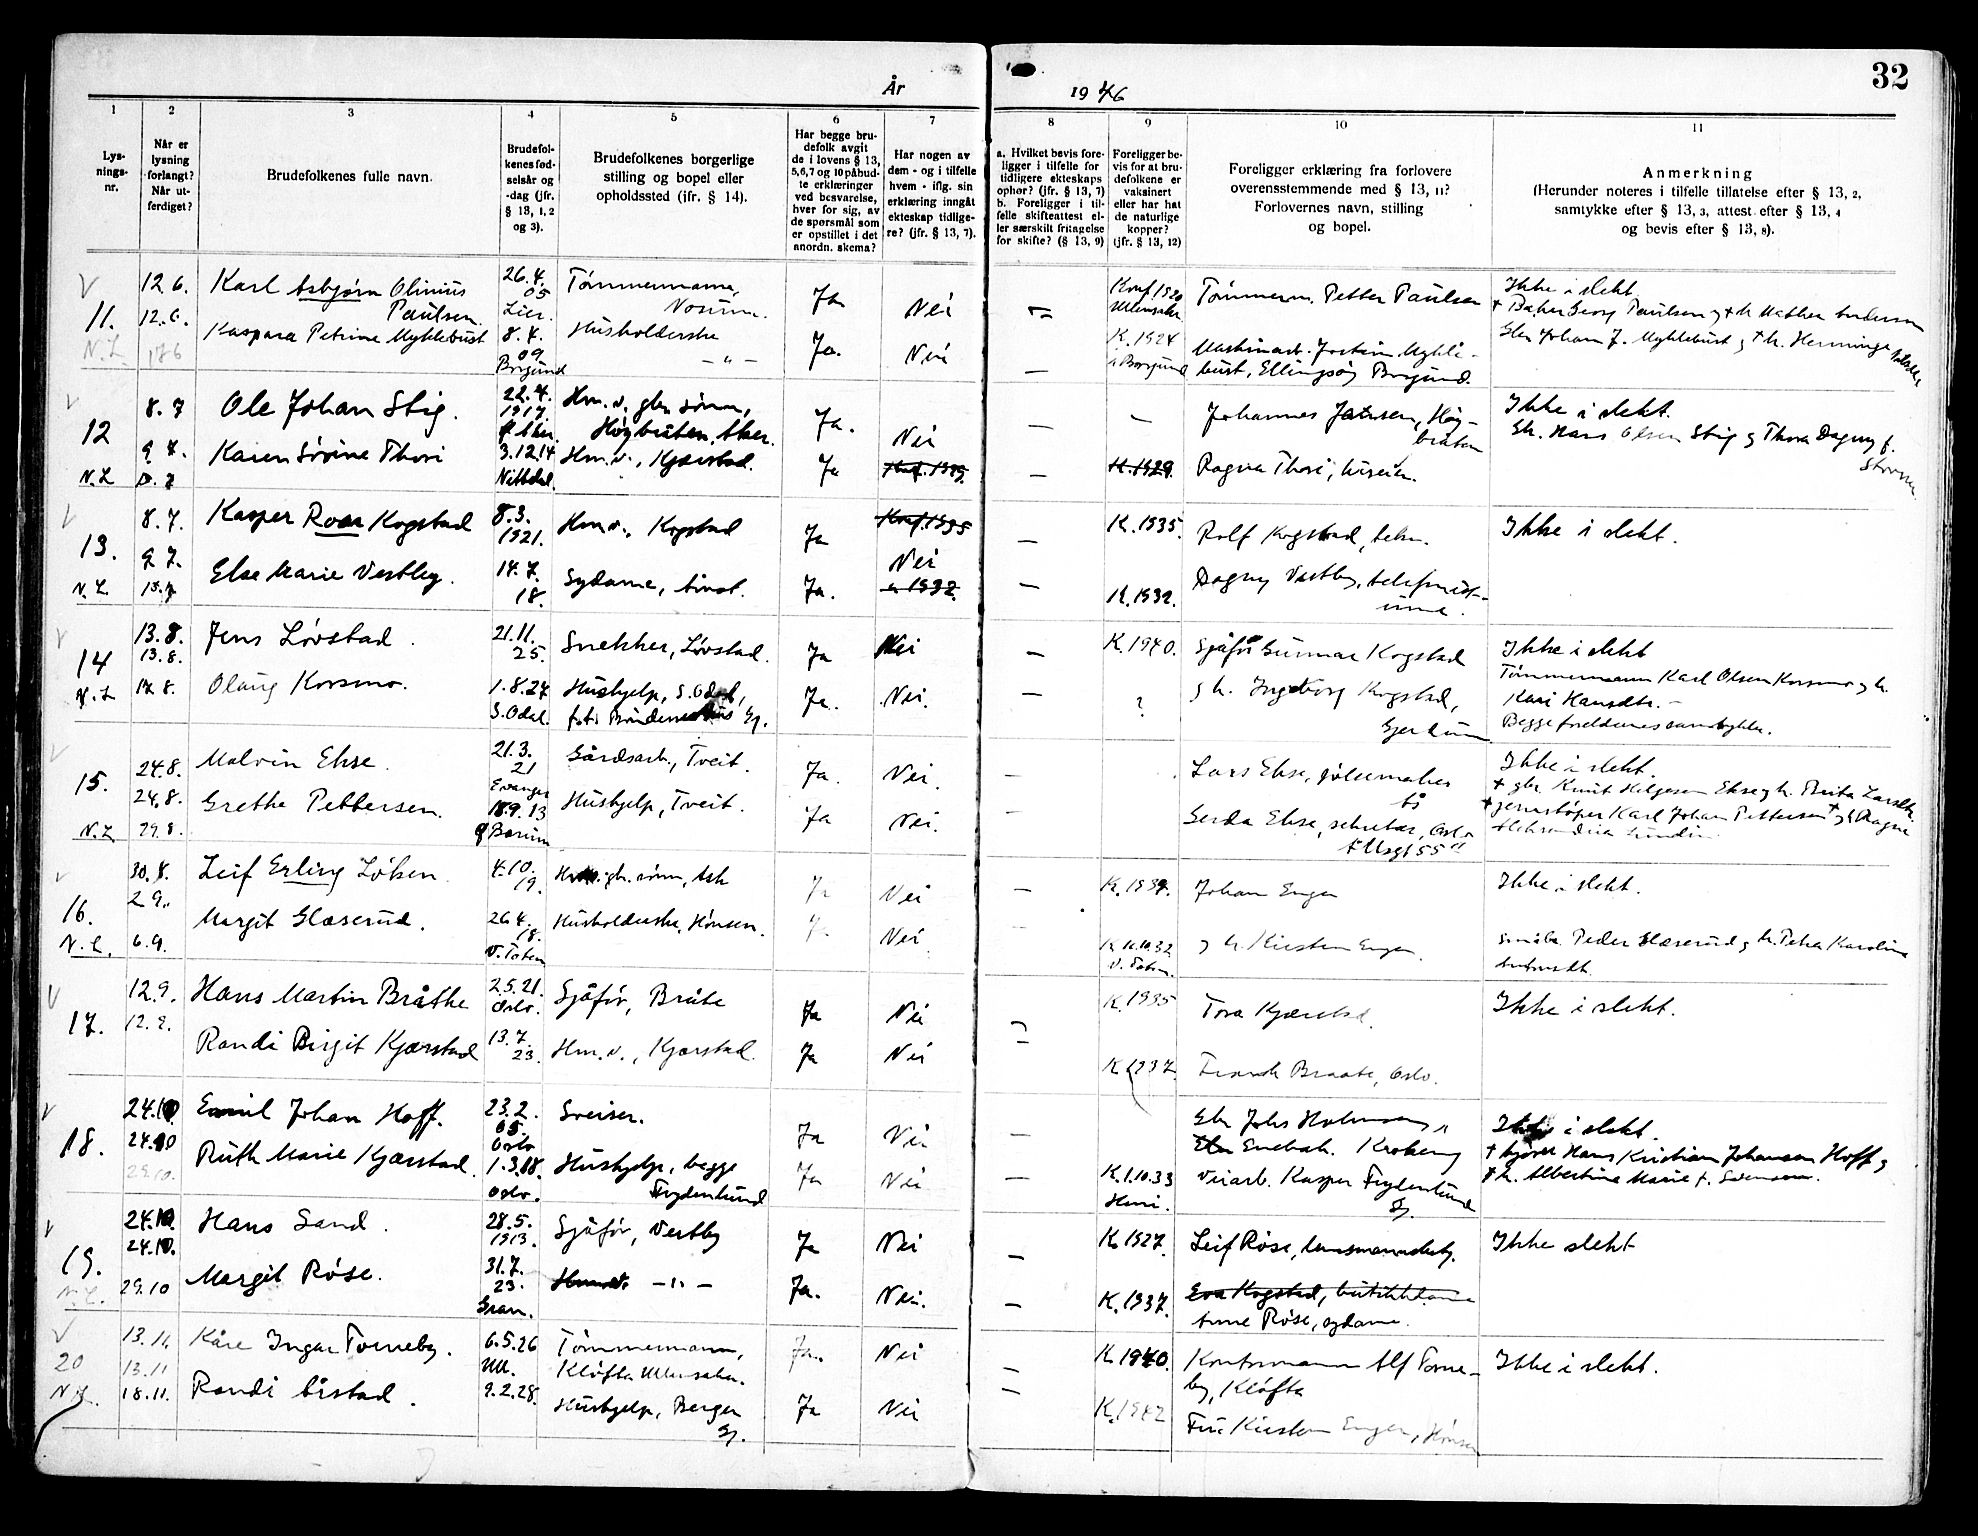 32
År
1946
1
2
3
4
5
6
7
8
9
10
11
Lys-
nings-
nr.
Når er
lysning
forlangt?
Når ut-
ferdiget?
Brudefolkenes fulle navn.
Brudefol-
kenes fød-
selsår og
-dag (jfr.
§ 13, 1, 2
og 3).
Brudefolkenes borgerlige
stilling og bopel eller
opholdssted (jfr. § 14).
Har begge bru-
defolk avgit
de i lovens § 13,
5, 6, 7 og 10 påbud-
te erklæringer
ved besvarelse,
hver for sig, av
de spørsmål som
er opstillet i det
anordn. skema?
Har nogen av
dem - og i tilfelle
hvem - iflg. sin
erklæring inngåt
ekteskap tidlige-
re? (jfr. § 13, 7).
a. Hvilket bevis fore-
ligger i tilfelle for
tidligere ekteskaps
ophør? (jfr. § 13, 7)
b. Foreligger i til-
felle skifteattest el-
ler særskilt fritagelse
for skifte? (§ 13, 9)
Foreligger be-
vis for at bru-
defolkene er
vaksinert
eller har hat
de naturlige
kopper?
(jfr. § 13, 12)
Foreligger erklæring fra forlovere
overensstemmende med § 13, 11?
Forlovernes navn, stilling
og bopel.
Anmerkning
(Herunder noteres i tilfelle tillatelse efter § 13, 2,
samtykke efter § 13, 3, attest efter § 13, 4
og bevis efter § 13, 8).
11.
N.L
12.6.
12.6.
17 6
Karl Asbjørn Olinius
Paulsen.
Kaspara Petrine Myklebust
26.4.
05
Lier.
8.4.
09
Borgund
Tømmermann,
Husholderske
— " —
Ja
Ja.
Nei
Nei
—
—
Konf 1920
Ullensaker
K. 1924
i Borgund
Tømmerm. Petter Paulsen
Maskinarb. Jostein Mykle-
bust, Ellingsøy Borgund.
Ikke i slekt
Georg Paulsen
Johan J. Myklebust
12
N.L
8.7
9.7.
Ole Johan Stig.
Karen Sørine Thori
22.4.
1917
Aker.
3.12.14
Nittedal.
Hm.v. gbr sønn,
Høybråten, Aker.
Hm.v., Kjærstad.
Ja.
Ja
Nei
Konf. 1929
—
—
—
K. 1929.
Johannes Jansen, Høy-
bråten
Ragna Thori,
Ikke i slekt.
Hans Olsen Stig & Thora Dagny f.
13.
N.L.
8.7.
9.7.
15.7
Kasper Roar Kogstad
Else Marie Vestby.
8.3.
1921.
14.7.
18.
Hm.v., Kogstad
Sydame,
Ja
Ja.
Konf. 1935
Nei
" 1932.
—
—
K. 1935.
K. 1932.
Rolf Kogstad,
Dagny Vestby,
Ikke i slekt.
14
N.L
13.8.
13.8.
17.8.
Jens Løvstad.
Olaug Korsmo.
21.11.
25.
1.8.27
S.Odal.
Snekker, Løvstad.
Hushjelp, S.Odal,
Ja
Ja.
Nei
Nei.
—
—
K. 1940.
?
Sjåfør Gunnar Kogstad
& h. Ingeborg Kogstad,
Gjerdrum
Ikke i slekt
Tømmermann Karl Olsen Korsmo & h.
Kari Hansdtr. —
Begge foreldrenes samtykke.
15.
N.L
24.8.
24.8.
29.8.
Malvin Ekse.
Grethe Pettersen.
21.3.
21
Evanger
18.9.13
Bærum
Gårdsarb., Tveit.
Hushjelp, Tveit.
Ja.
Ja
Nei
Nei.
—
—
Lars Ekse, pølsemaker
Gerda Ekse, sekretær, Oslo
Ikke i slekt.
+ gbr Knut Helgesen Ekse & h. Brita Larsdtr.
Karl Johan Pettersen & h. Ragna
16.
N.L.
30.8.
2 9.
6.9.
Leif Erling Løken.
Margit Glæserud.
4.10.
19.
26.4.
18.
V. Toten
sønn, Ask
Husholderske, Hønsen.
Ja
Ja
Nei
Nei.
—
—
K. 1934.
K 10.10.32
V. Toten.
Johan Enger
& h. Kirsten Enger.
Ikke i slekt.
Småbr. Peder Glæserud & h. Petra Karoline
17.
12.9.
12.9.
Hans Martin Bråthe
Randi Birgit Kjærstad
2.5.21.
Oslo.
13.7.
23.
Sjåfør, Bråte
Hm.v., Kjærstad.
Ja
Ja
Nei
Nei
—
—
K. 1935
K. 1937.
Tora Kjærstad.
Frank Braate, Oslo.
Ikke i slekt.
18.
24.10
24.10
29.10.
Emil Johan Hoff.
Ruth Marie Kjærstad.
23.2.
05.
Oslo
1.3.18.
Oslo.
Sveiser.
Hushjelp, begge
Frydenlund
Ja
Ja
Nei
Nei
—
—
K. 1.10.33
Gbr Johs Holmsen,
Enebakk. Kroken
Veiarb. Kasper Frydenlund
Gj.
Ikke i slekt.
Hans Kristian Johansen Hoff &
+ h. Albertine Marie f.
19.
N.L.
24.10.
24.10.
29.10
Hans Sand.
Margit Røse.
28.5.
1913.
31.7.
23.
Gran.
Sjåfør, Vestby
Hm.v. — " —
Ja
Ja.
Nei
Nei.
—
—
K. 1927.
K. 1937.
Leif Røse, lensmannsbetj.
Eva Kogstad, butikkdame
Anne Røse, sydame.
Ikke slekt
20
N.L.
13.11.
13.11
18.11.
Kåre Ingar Torneby.
Randi Årstad.
6.5.26
Ull.
9.2.28.
Tømmermann,
Kløfta Ullensaker.
Hushjelp, Berger
Gj.
Ja.
Ja
Nei
Nei
—
—
K 1940.
K. 1942
Kontormann Alf Torne-
by, Kløfta
Fru Kirsten Enger, Hønsen
Ikke i slekt.